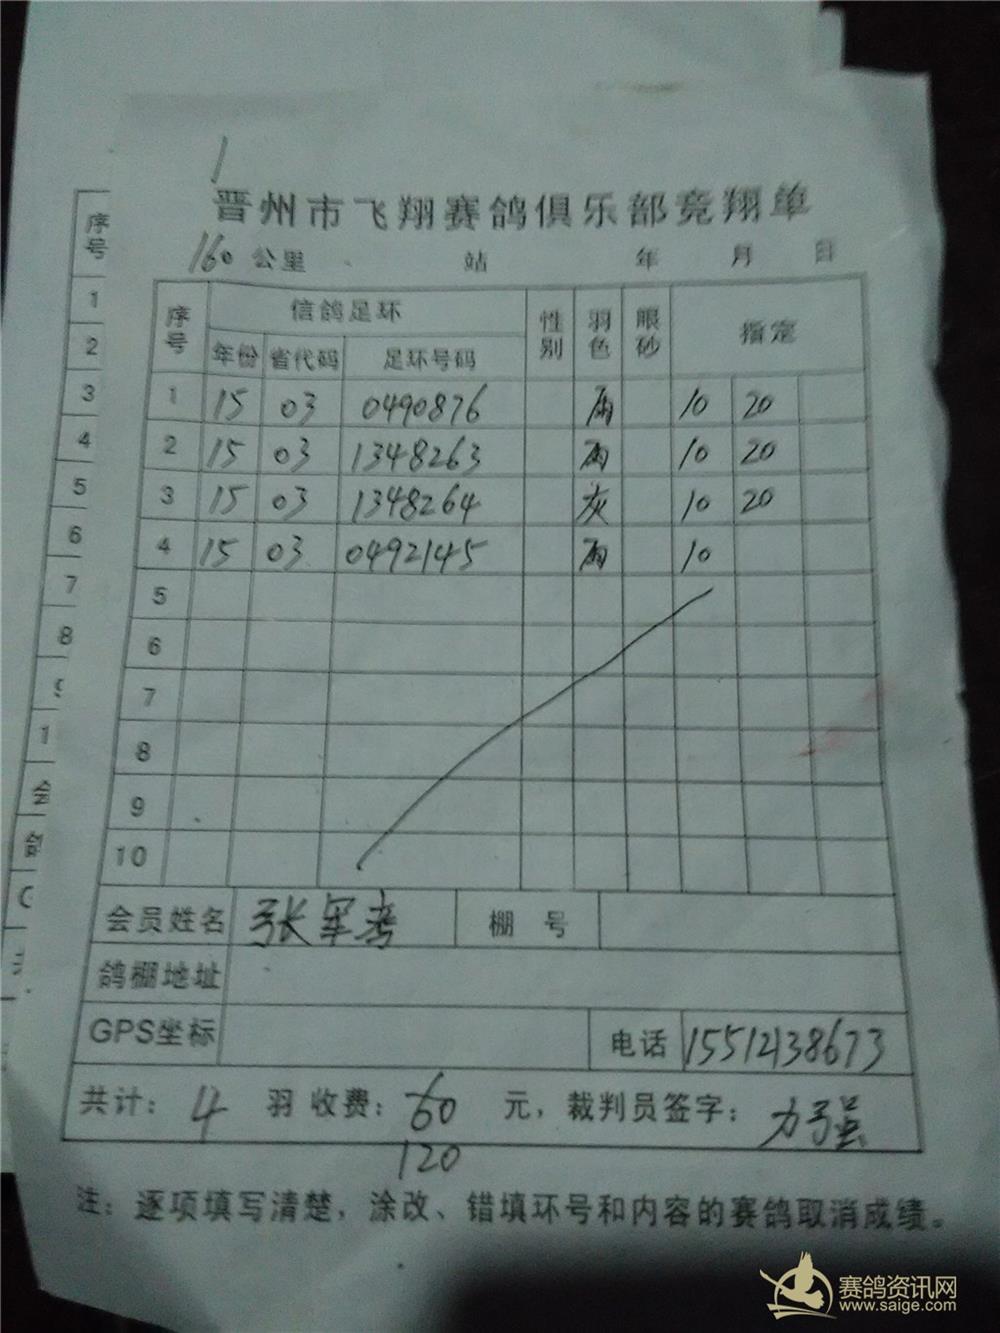 1
晋州市飞翔赛鸽俱乐部竞翔单
160 公里 站 年 月 日
序号 信鸽足环 性别 羽色 眼砂 指定
年份 省代码 足环号码
1 15 03 0490876 雨 10 20
2 15 03 1348263 雨 10 20
3 15 03 1348264 灰 10 20
4 15 03 0492145 雨 10
5
6
7
8
9
10
会员姓名 张军 棚号
鸽棚地址
GPS坐标 电话 15512438673
共计: 4 羽 收费: 60 元, 裁判员签字: 力强
120
注: 逐项填写清楚, 涂改、错填环号和内容的赛鸽取消成绩。
序号
1
2
3
4
5
6
7
8
赛鸽资讯网
www.saige.com